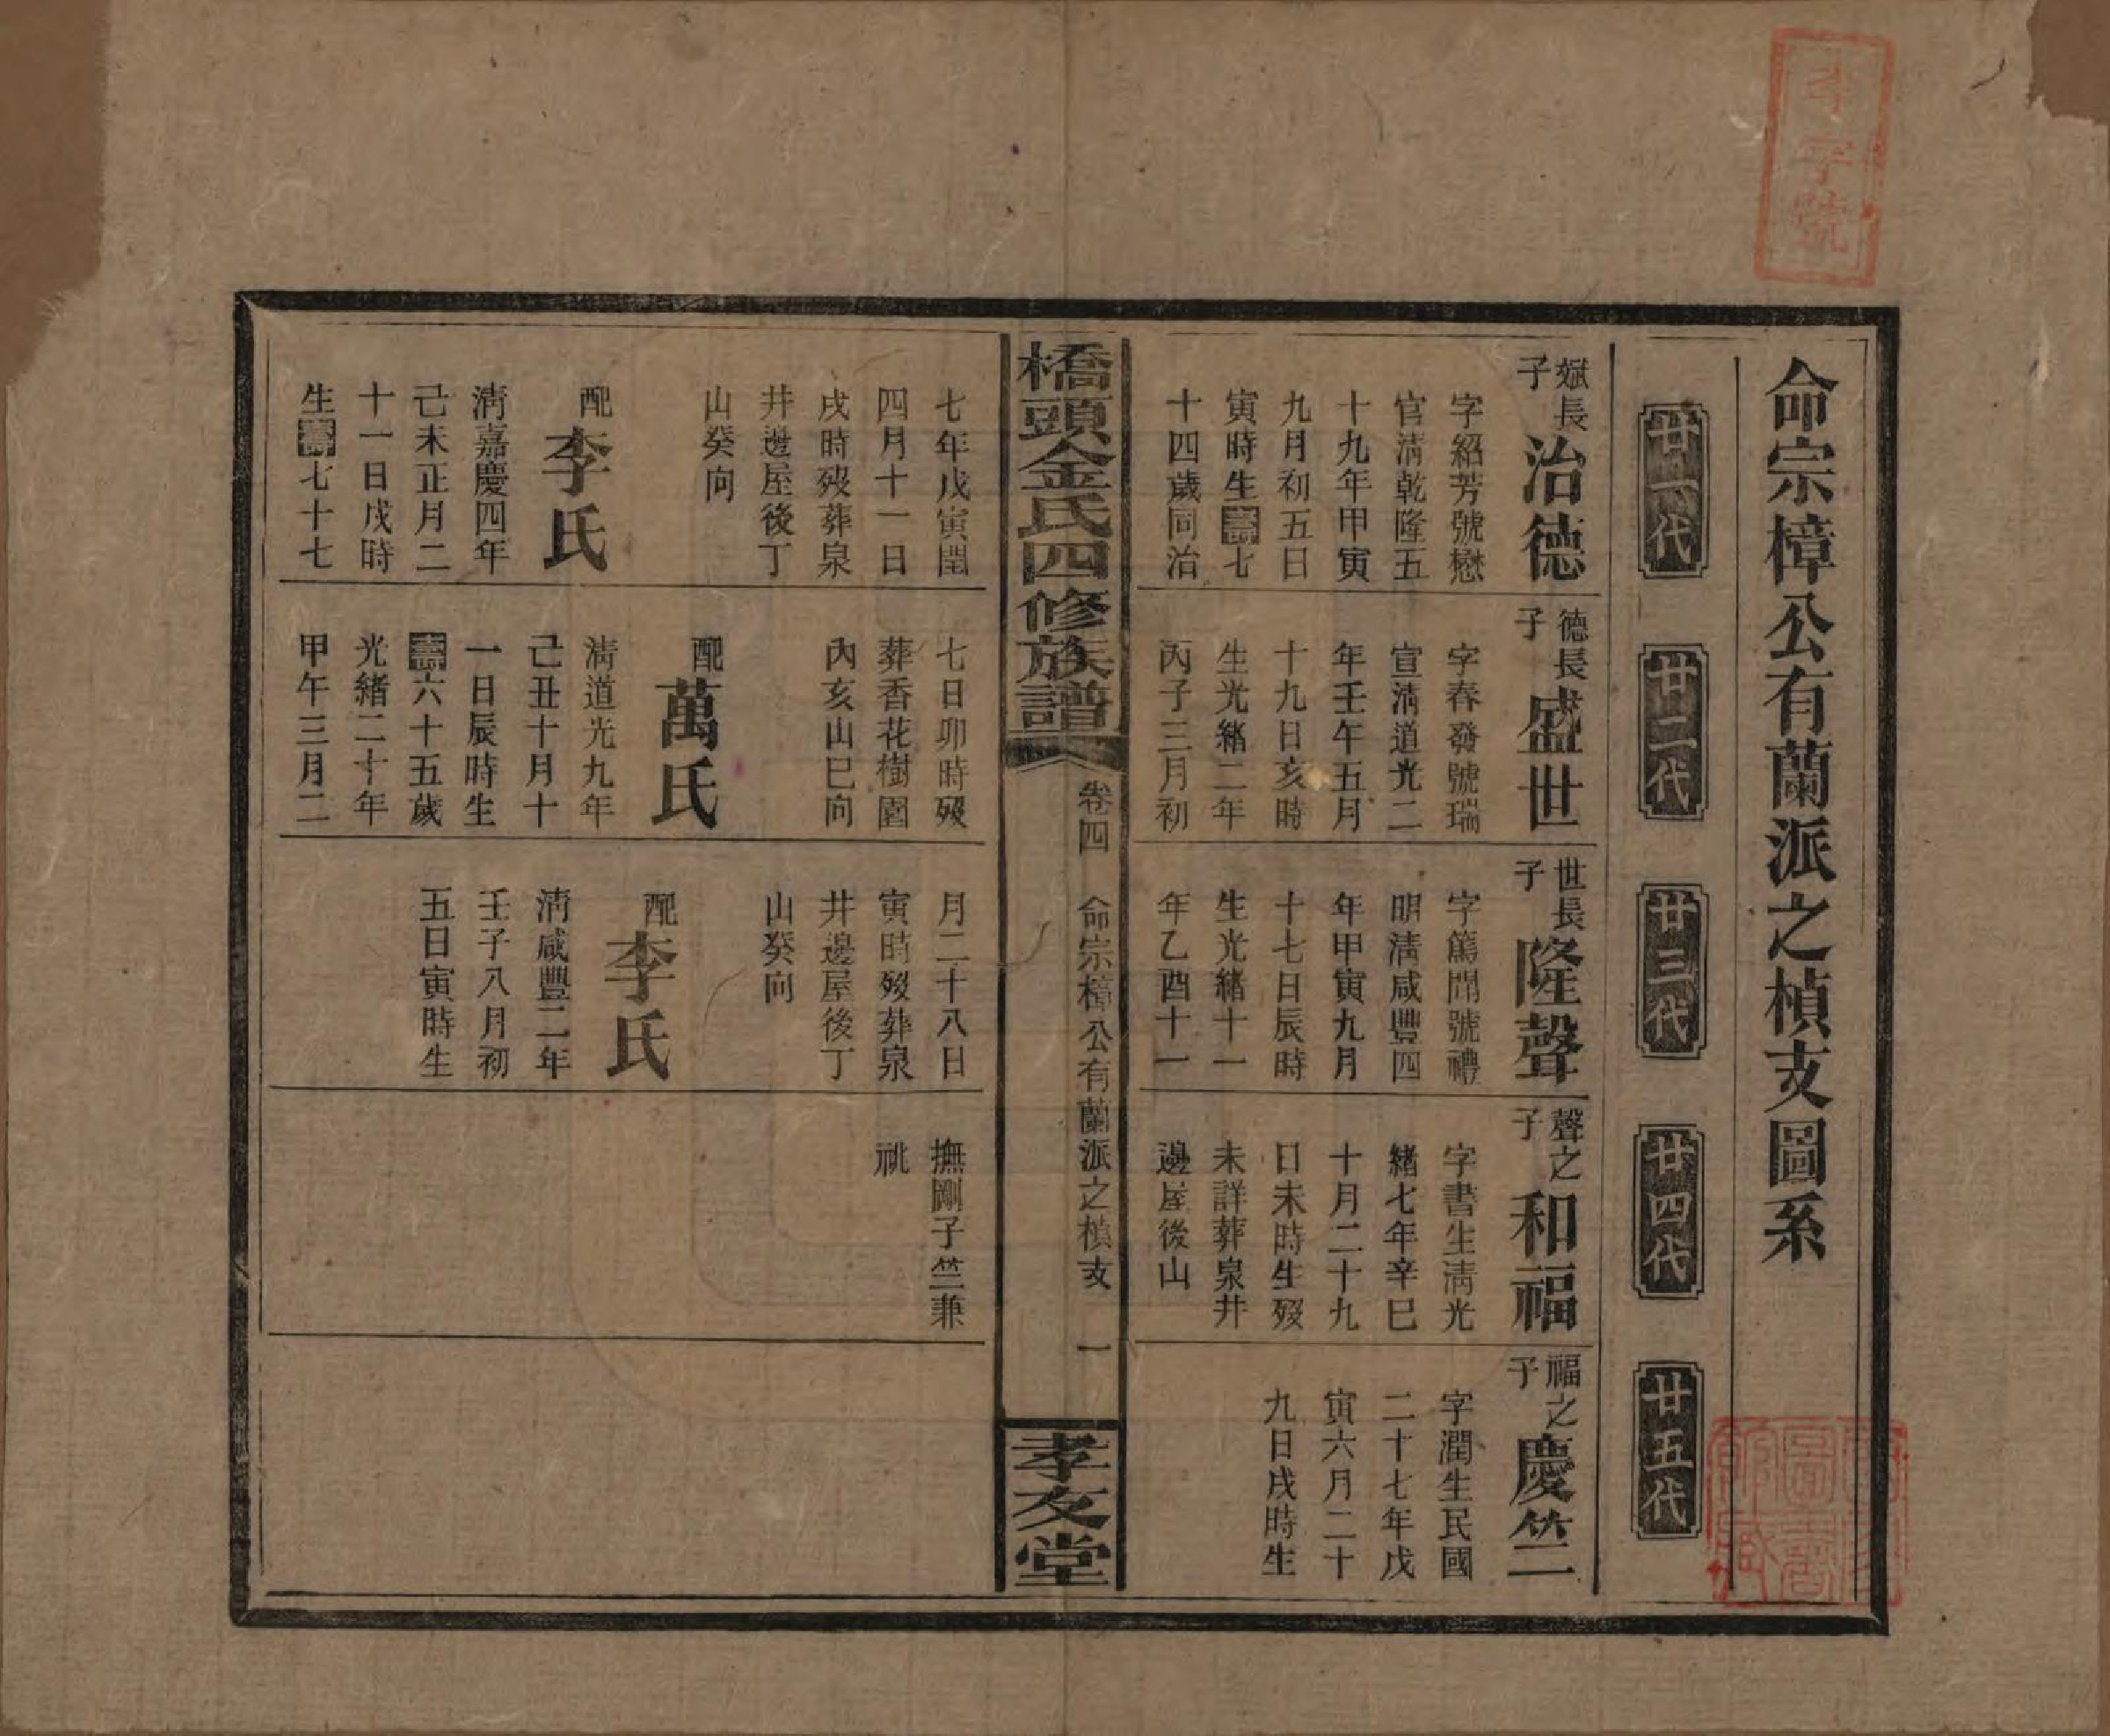 字號
命宗樟公有蘭派之楨支圖系
廿一代
廿二代
廿三代
廿四代
廿五代
斌長子
治德
字紹芳號懋
官淸乾隆五
十九年甲寅
九月初五日
寅時生壽七
十四歲同治
德長子
盛世
字春發號瑞
宣淸道光二
年壬午五月
十九日亥時
生光緖二年
丙子三月初
世長子
隆聲
字篤閒號禮
明淸咸豐四
年甲寅九月
十七日辰時
生光緖十一
年乙酉十一
聲之子
和福
字書生淸光
緖七年辛巳
十月二十九
日未時生歿
未詳葬泉井
邊屋後山
福之子
慶竺
字潤生民國
二十七年戊
寅六月二十
九日戌時生
橋頭金氏四修族譜
卷四
命宗樟公有蘭派之楨支
一
孝友堂
七年戊寅閏
四月十一日
戌時歿葬泉
井邊屋後丁
山癸向
配
李氏
淸嘉慶四年
己未正月二
十一日戌時
生壽七十七
七日卯時歿
葬香花樹園
內亥山巳向
配
萬氏
淸道光九年
己丑十月十
一日辰時生
壽六十五歲
光緖二十年
甲午三月二
月二十八日
寅時歿葬泉
井邊屋後丁
山癸向
配
李氏
淸咸豐二年
壬子八月初
五日寅時生
撫剛子竺兼
祧